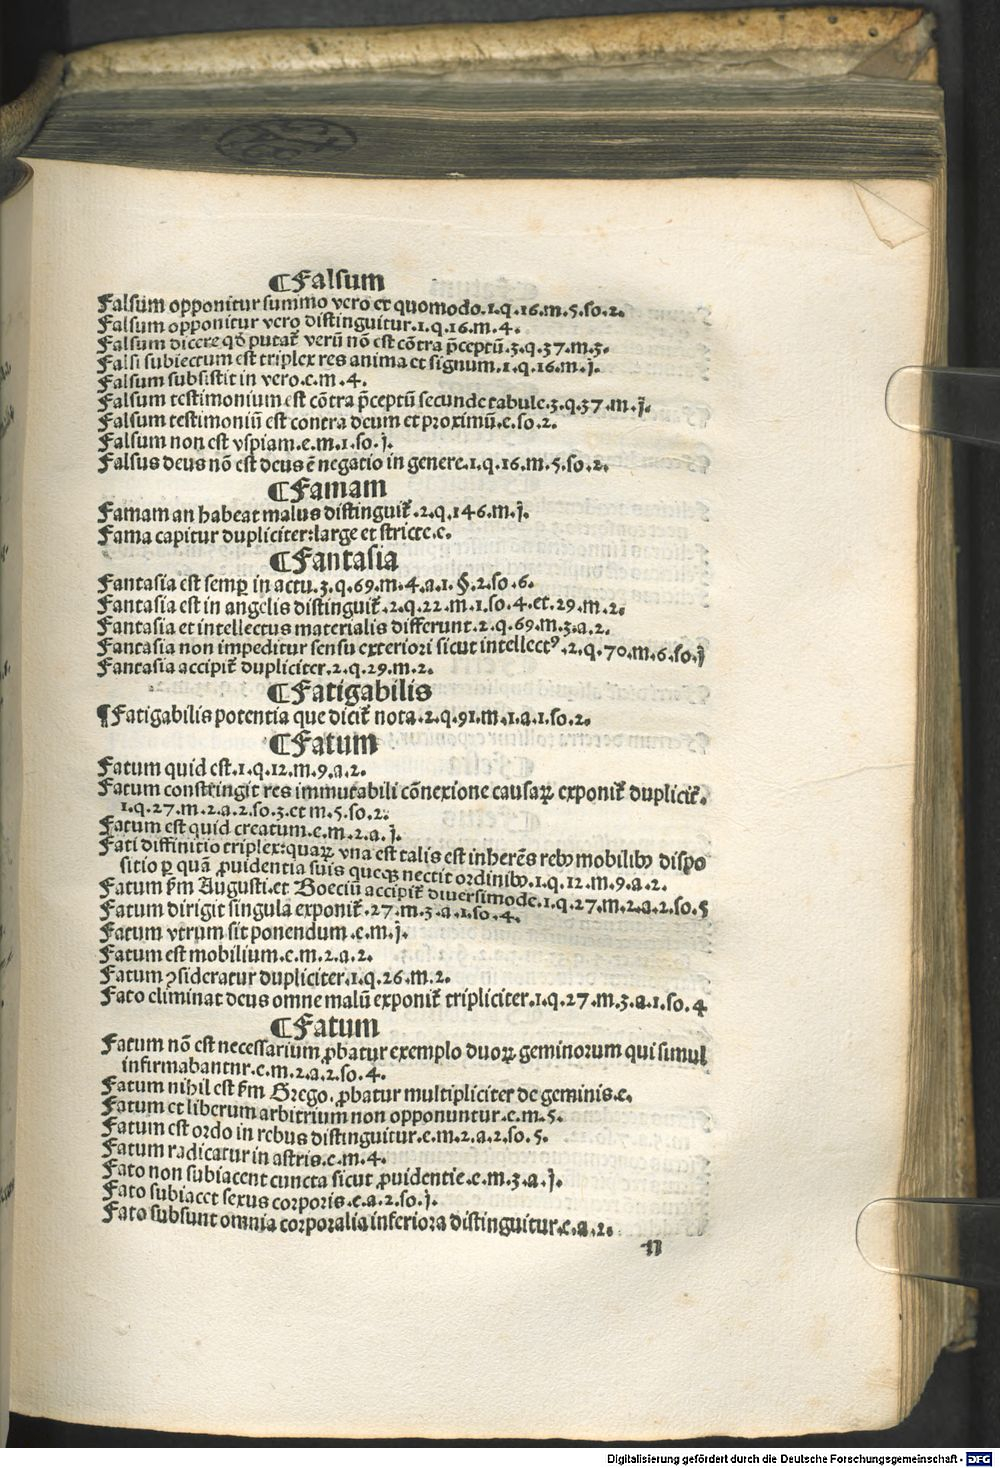 ¶Falsum
Falsum opponitur summo vero et quomodo.1.q.16.m.5.so.2.
Falsum opponitur vero distinguitur.1.q.16.m.4.
Falsum dicere qd̄ putat᷑ verū nō est cōtra p̄ceptū.3.q.37.m.3.
Falsi subiectum est triplex res anima et signum.1.q.16.m.j.
Falsum subsistit in vero.e.m.4.
Falsum testimonium est cōtra p̄ceptū secunde tabule.3.q.37.m.j.
Falsum testimoniū est contra deum et proximū.e.so.2.
Falsum non est vspiam.e.m.1.so.j.
Falsus deus nō est deus ē negatio in genere.1.q.16.m.5.so.2.
¶Famam
Famam an habeat malus distinguit᷑.2.q.146.m.j.
Fama capitur dupliciter:large et stricte.e.
¶Fantasia
Fantasia est semꝑ in actu.3.q.69.m.4.a.1.§.2.so.6.
Fantasia est in angelis distinguit᷑.2.q.22.m.1.so.4.et.29.m.2.
Fantasia et intellectus materialis differunt.2.q.69.m.3.a.2.
Fantasia non impeditur sensu exteriori sicut intellectꝰ.2.q.70.m.6.so.j
Fantasia accipit᷑ dupliciter.2.q.29.m.2.
¶Fatigabilis
¶Fatigabilis potentia que dicit᷑ nota.2.q.91.m.1.a.1.so.2.
¶Fatum
Fatum quid est.1.q.12.m.9.a.2.
Fatum constringit res immutabili cōnexione causaꝝ exponit᷑ duplicit᷑.
1.q.27.m.2.a.2.so.3.et m.5.so.2.
Fatum est quid creatum.e.m.2.a.j.
Fati diffinitio triplex:quaꝝ vna est talis est inherēs rebꝰ mobilibꝰ dispo
sitio ꝑ quā ꝓuidentia suis queqꝫ nectit ordinibꝰ.1.q.12.m.9.a.2.
Fatum ẜm Augusti.et Boeciū accipit᷑ diuersimode.1.q.27.m.2.a.2.so.5
Fatum dirigit singula exponit᷑.27.m.3.a.1.so.4.
Fatum vtrum sit ponendum.e.m.j.
Fatum est mobilium.e.m.2.a.2.
Fatum ꝯsideratur dupliciter.1.q.26.m.2.
Fato eliminat deus omne malū exponit᷑ tripliciter.1.q.27.m.3.a.1.so.4
¶Fatum
Fatum nō est necessarium ꝓbatur exemplo duoꝝ geminorum qui simul
infirmabantnr.e.m.2.a.2.so.4.
Fatum nihil est ẜm Grego.ꝓbatur multipliciter de geminis.e.
Fatum et liberum arbitrium non opponuntur.e.m.5.
Fatum est ordo in rebus distinguitur.e.m.2.a.2.so.5.
Fatum radicatur in astris.e.m.4.
Fato non subiacent cuncta sicut ꝓuidentie.e.m.3.a.j.
Fato subiacet sexus corporis.e.a.2.so.j.
Fato subsunt omnia corporalia inferiora distinguitur.e.a.2.
Digitalisierung gefördert durch die Deutsche Forschungsgemeinschaft - DFG